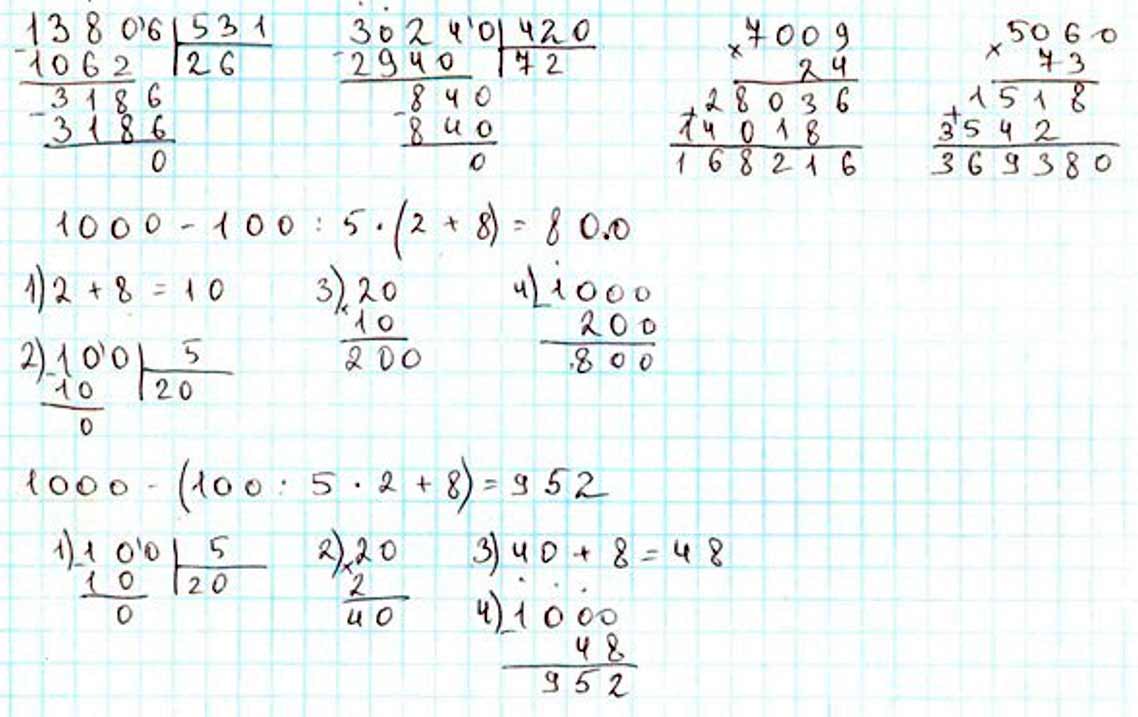 13806 | 531
-1062 | 26
-3186
3186
0
30240 | 420
-2940 | 72
-840
840
0
×7009
24
+28036
14018
168216
×5060
73
+1518
3542
369380
1000 - 100 : 5 · (2 + 8) = 800
1) 2 + 8 = 10
2) -100 | 5
10 | 20
0
3) ×20
10
200
4) -1000
200
800
1000 - (100 : 5 · 2 + 8) = 952
1) -100 | 5
10 | 20
0
2) ×20
2
40
3) 40 + 8 = 48
4) -1000
48
952